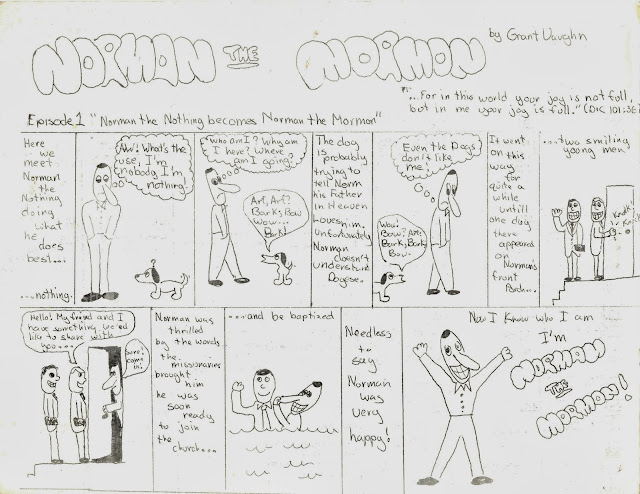 NORMAN THE MORMON
by Grant Vaughn
"...For in this world your joy is not full,
but in me your joy is full." (D&C 101:36)
Episode 1 "Norman the Nothing becomes Norman the Mormon"
Here
we
meet
Norman
the
Nothing
doing
what
he
does
best...
...nothing.
Aw! What's the
use, I'm
nobody. I'm
nothing.
Who am I? Why am
I here? Where
am I going?
Arf, Arf?
Bark, Bow
Wow...
Bark!
The dog
is
probably
trying to
tell Norm
his Father
in Heaven
Loves him.
Unfortunately
Norman
doesn't
understand
Dogese.
Even the Dogs
don't like
me!
Wow!
Bow! Arf!
Bark, Bark
Bow-
It went
on this
way
for
quite a
while
untill
one day
there
appeared
on
Norman's
front
Porch...
...two smiling
young men.
Knock!
Knock!
Hello! My friend and I
have something we'ed
like to share with
you...
Sure,
come
in.
Norman was
thrilled
by the words
the
missionaries
brought
him
he was
soon
ready
to join
the
church...
...and be baptized
Needless
to
say
Norman
was
very
happy!
Now I Know who I am
I'm
NORMAN
THE
MORMON!